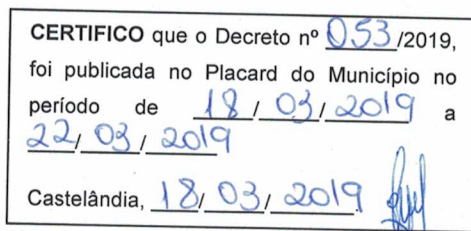 CERTIFICO que o Decreto nº 053/2019,
foi publicada no Placard do Município no
período de 18/03/2019 a
22/03/2019
Castelândia, 18/03/2019